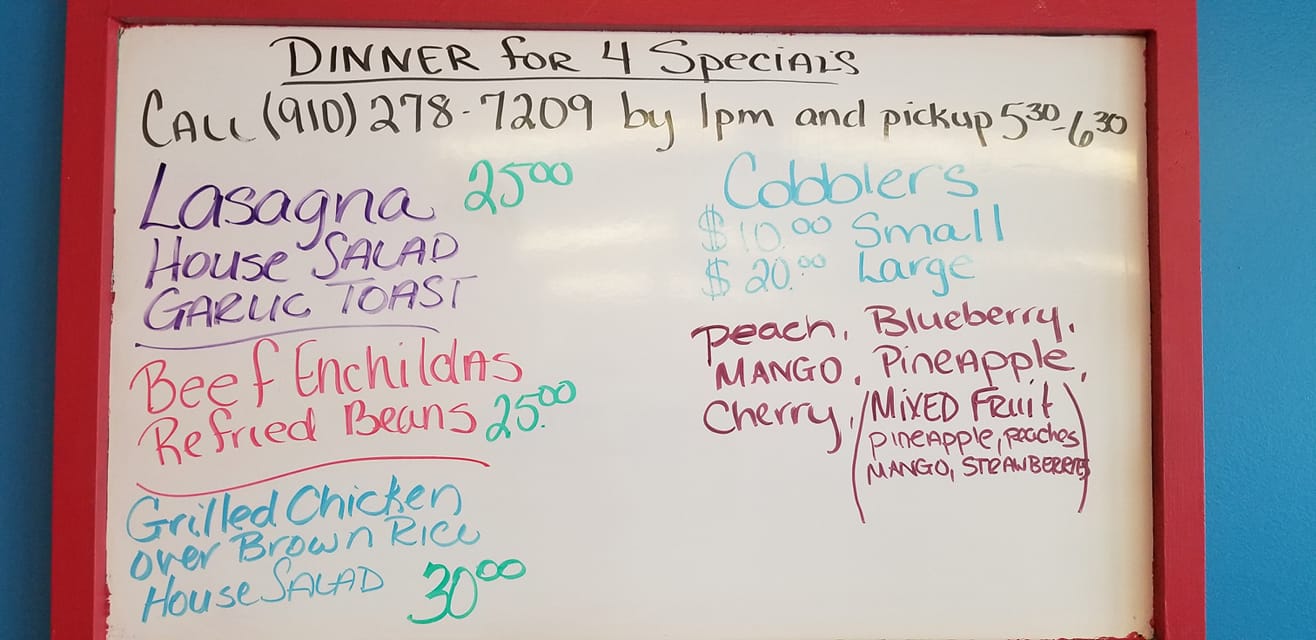 DINNER for 4 Specials
CALL (910) 278-7209 by 1pm and pickup 5 30-6 30
Lasagna 25 00
House SALAD
GARLIC TOAST
Beef Enchildas
Refried Beans 25.00
Grilled Chicken
over Brown Rice
House SALAD 30 00
Cobblers
$10.00 Small
$20.00 Large
peach, Blueberry,
MANGO, PineApple,
Cherry, (MIXED Fruit
pineApple, peaches
MANGO, STRAWBERRIES)